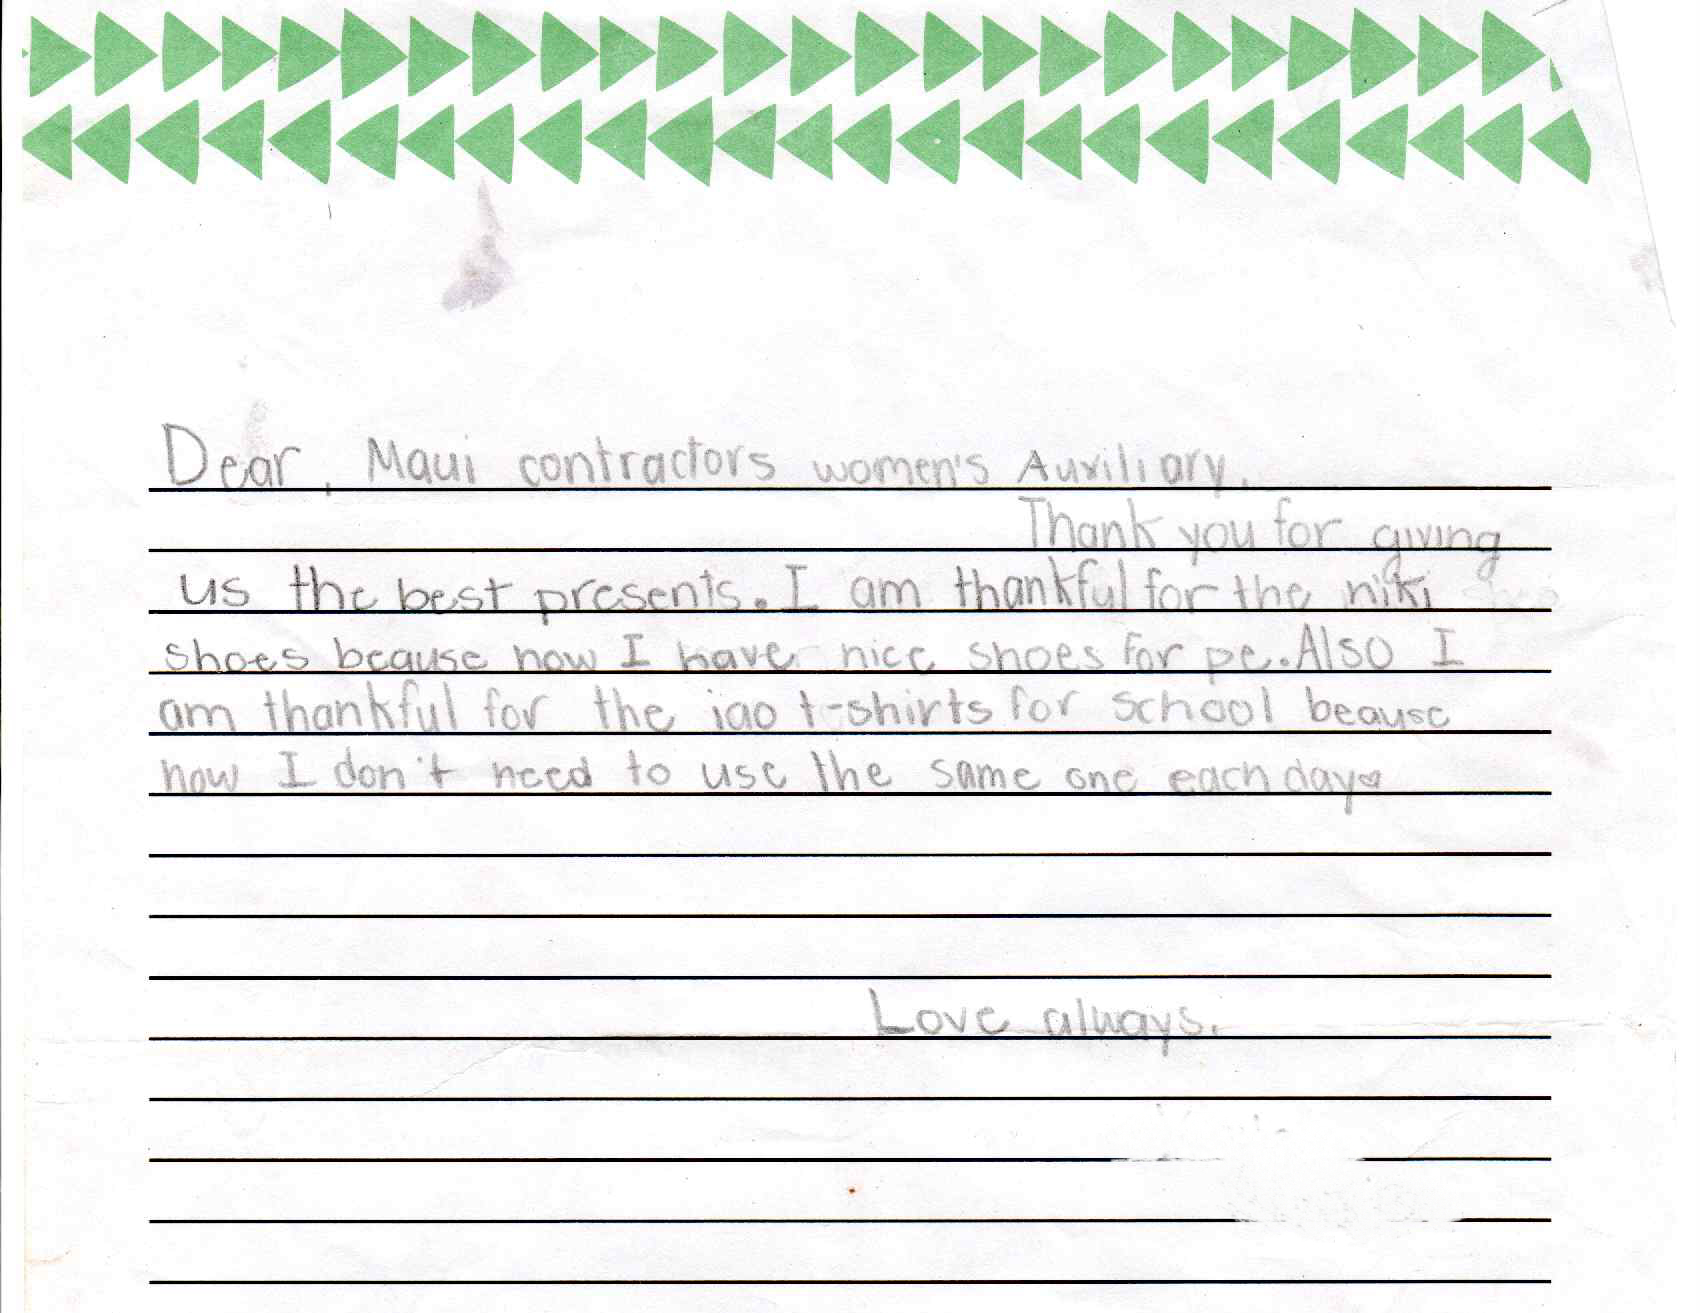 Dear, Maui contractors women's Auxiliary,
Thank you for giving
us the best presents. I am thankful for the niki
shoes beause now I have nice shoes for pe. Also I
am thankful for the iao t-shirts for school beause
now I don't need to use the same one each day.
Love always,